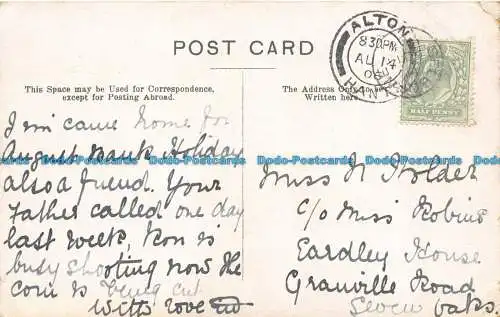 POST CARD
This Space may be Used for Correspondence,
except for Posting Abroad.
The Address Only to be
Written here.
ALTON
8.30PM
AU 14
06
HANTS
HALF PENNY
Jim came home for
August Bank Holiday
also a friend. Your
Father called one day
last week, Ron is
busy shooting now the
corn is being cut
With love
Miss N Holder
c/o Miss Robins
Eardley House
Granville Road
Seven oaks.
Dodo-Postcards Dodo-Postcards Dodo-Postcards Dodo-Postcards Dodo-Postcards